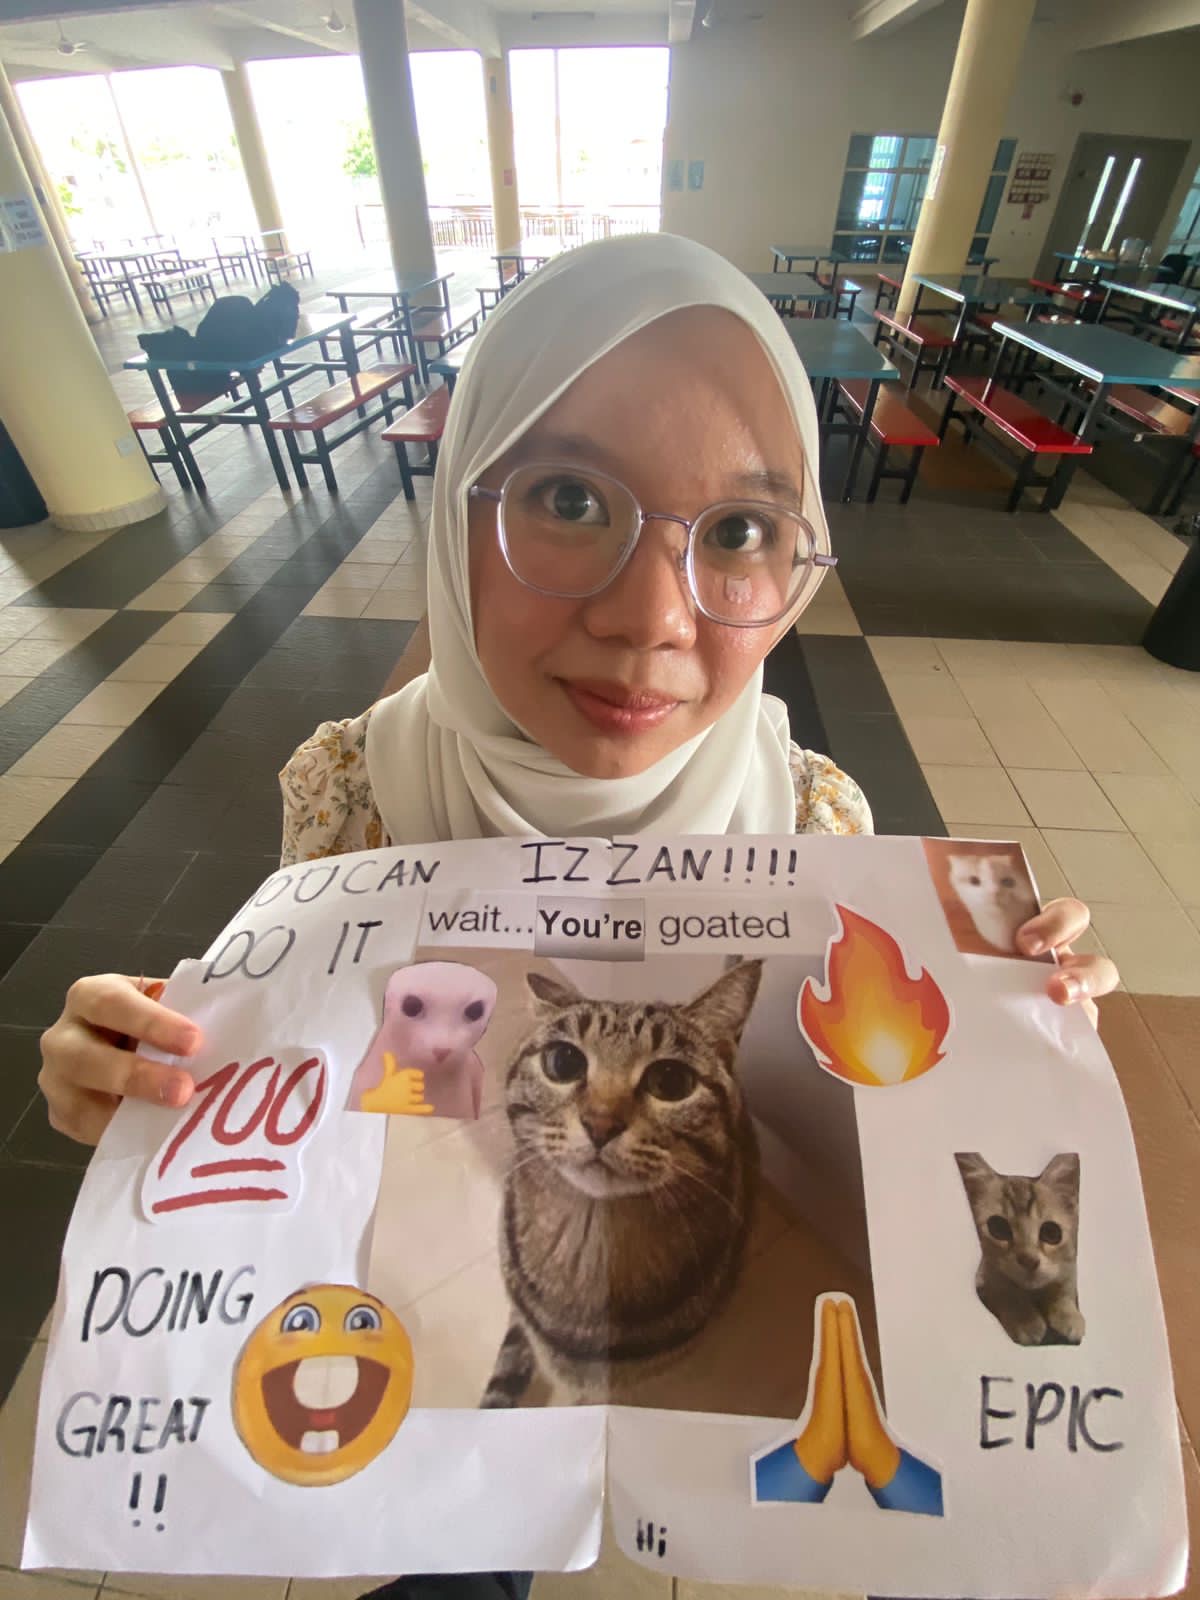 YOU CAN IZZAN!!!!
DO IT
wait... You're goated
100
DOING
GREAT
!!
EPIC
Hi